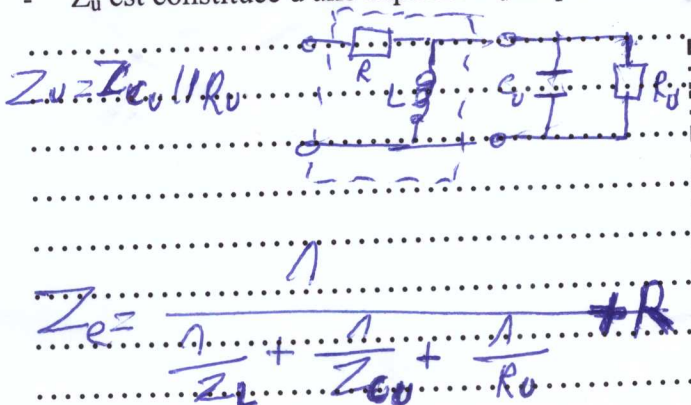 - Zᵤ est constituée d'une
Zᵤ = Z_Cᵤ // Rᵤ
R L Cᵤ Rᵤ
Zₑ = 1 / (1/Z_L + 1/Z_Cᵤ + 1/Rᵤ) + R